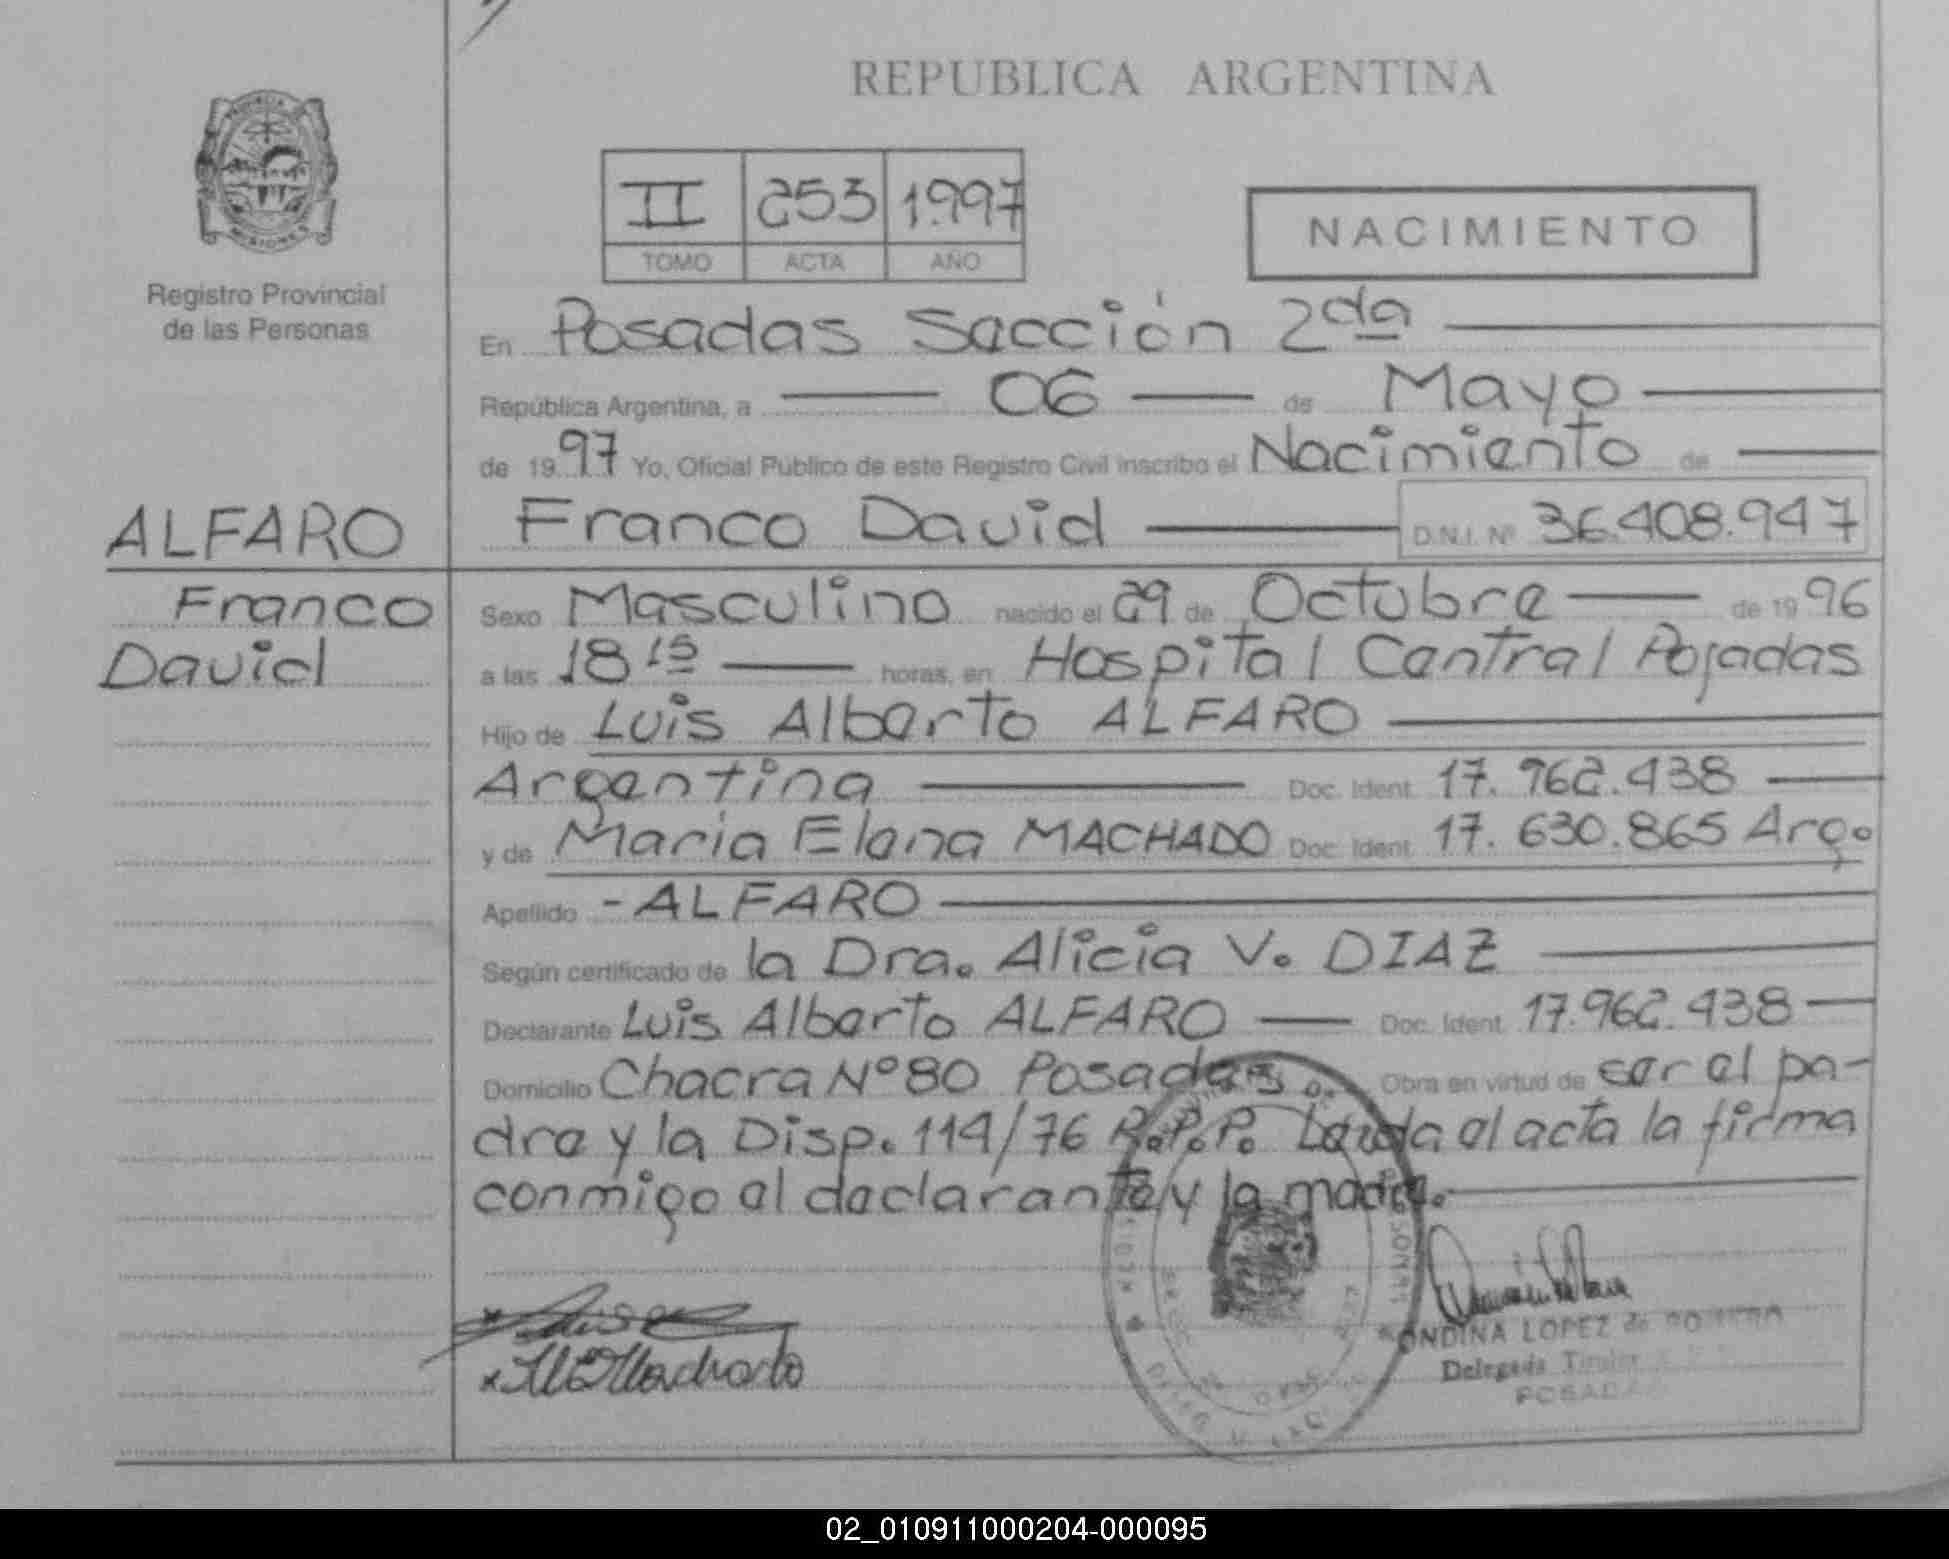 REPUBLICA ARGENTINA
MISIONES
Registro Provincial
de las Personas
II 253 1997
TOMO ACTA AÑO
NACIMIENTO
En Posadas Sección 2da
República Argentina, a 06 de Mayo
de 1997 Yo, Oficial Público de este Registro Civil inscribo el Nacimiento de
ALFARO
Franco David D.N.I. Nº 36.408.947
Franco
David
Sexo Masculino nacido el 29 de Octubre de 1996
a las 18 15 horas, en Hospital Central Posadas
Hijo de Luis Alberto ALFARO
Argentina Doc. Ident. 17.962.438
y de Maria Elena MACHADO Doc. Ident. 17.630.865 Arg.
Apellido - ALFARO
Según certificado de la Dra. Alicia V. DIAZ
Declarante Luis Alberto ALFARO Doc. Ident. 17.962.438
Domicilio Chacra Nº 80 Posadas. Obra en virtud de ser el pa-
dre y la Disp. 114/76 R.P.P. Leída el acta la firma
conmigo el declarante y la madre.
x
x Machado
ONDINA LOPEZ de
Delegada Titular
POSADAS
02_010911000204-000095